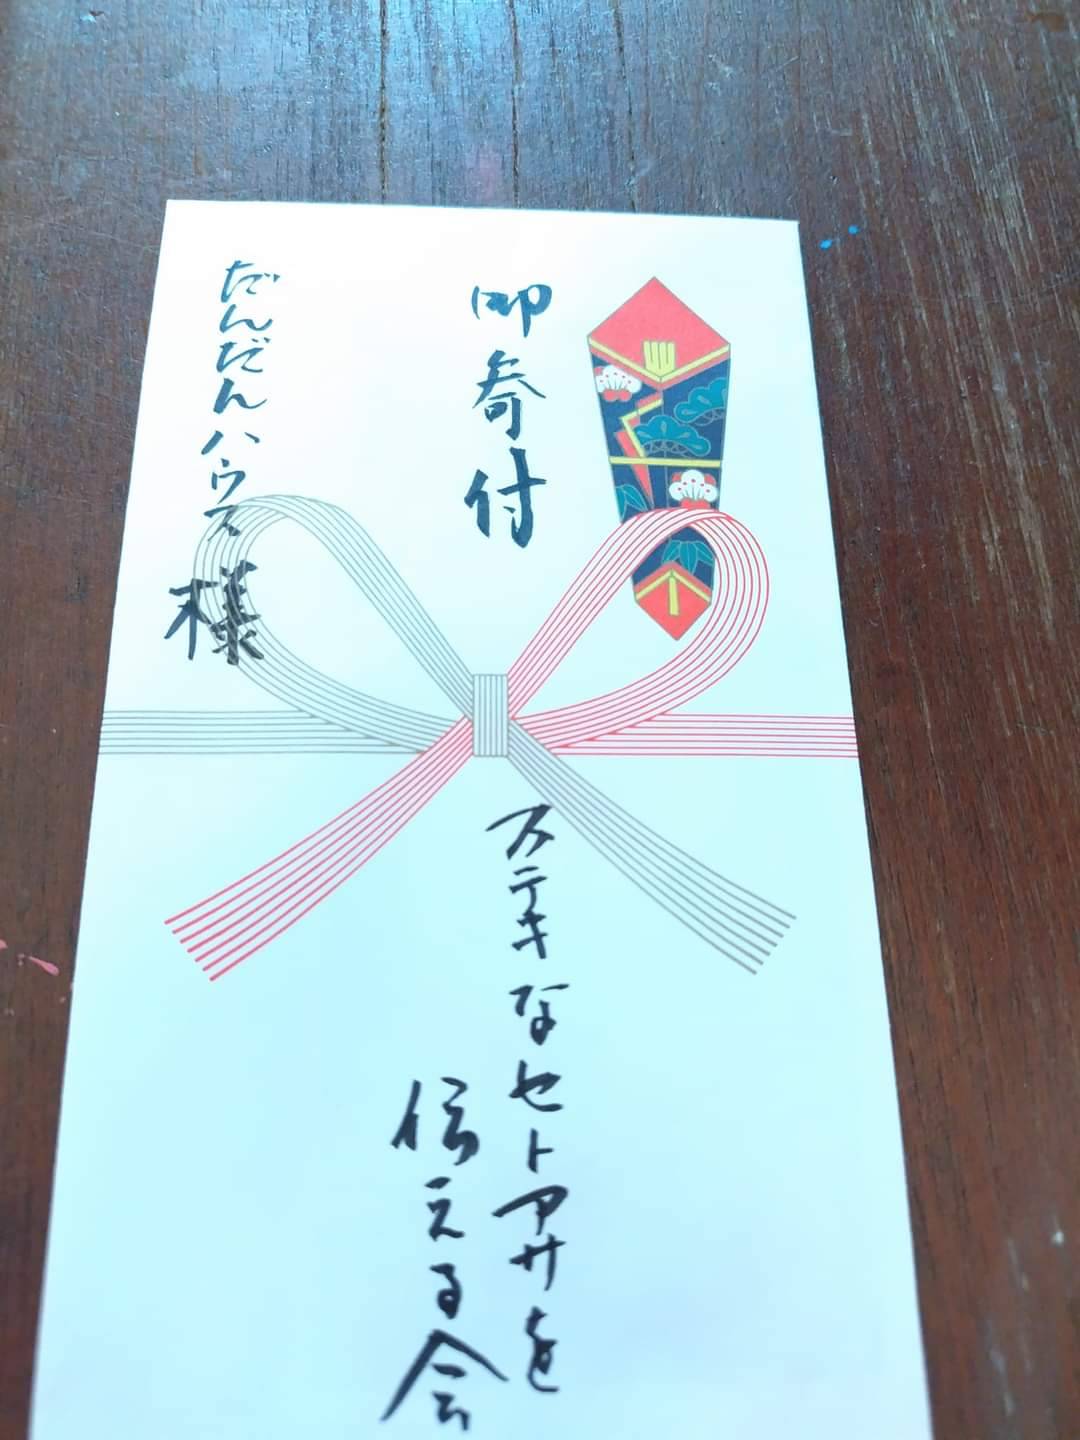 御寄付
だんだんハウス様
ステキなセトアサを
伝える会